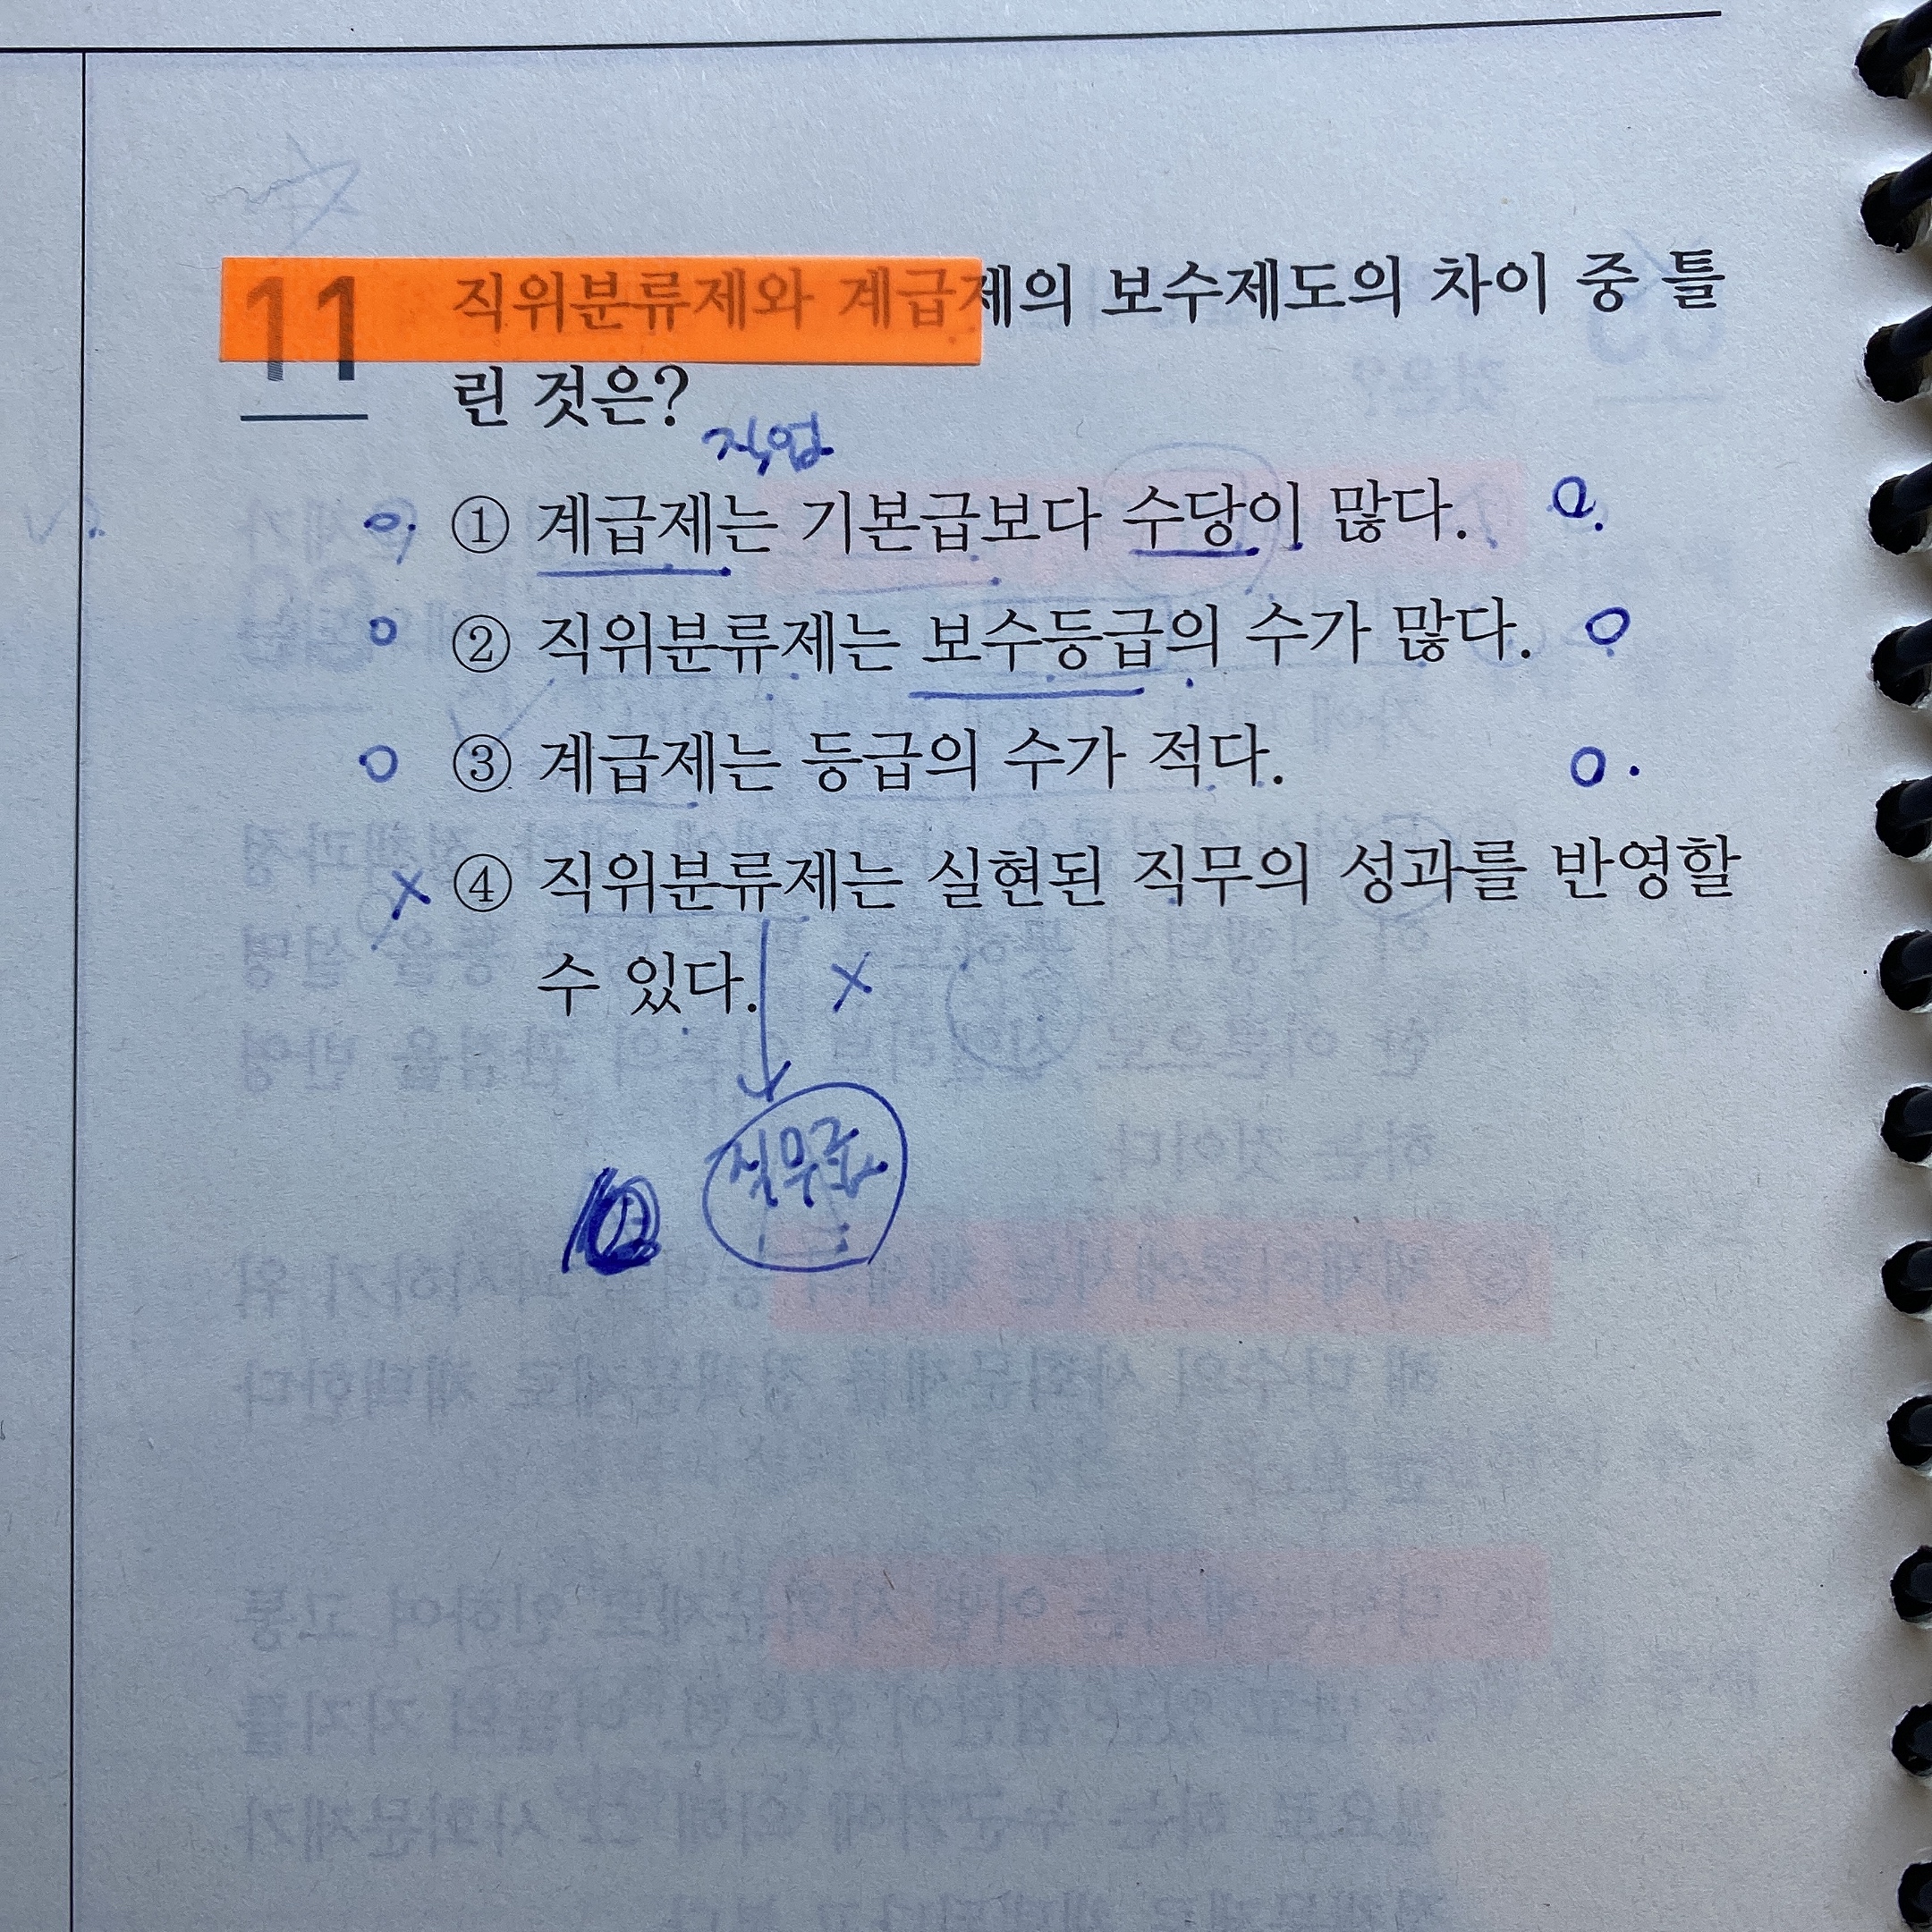 11 직위분류제와 계급제의 보수제도의 차이 중 틀
린 것은?
직업
① 계급제는 기본급보다 수당이 많다.
② 직위분류제는 보수등급의 수가 많다.
③ 계급제는 등급의 수가 적다.
④ 직위분류제는 실현된 직무의 성과를 반영할
수 있다.